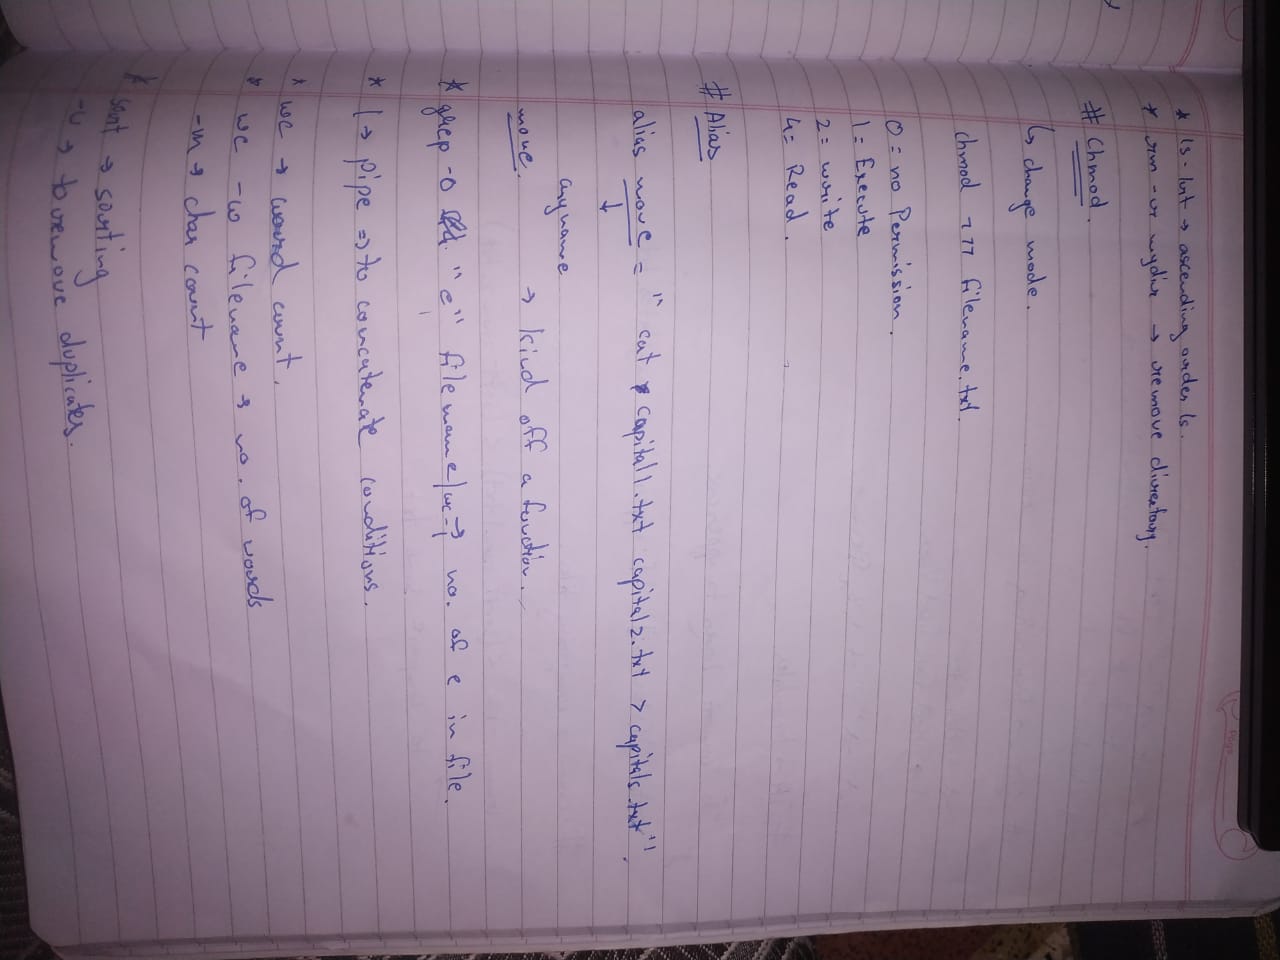 * ls -lrt → ascending order ls.
* rm -r mydir → remove directory.
# Chmod.
↳ change mode.
chmod 777 filename.txt.
0 = no Permission.
1 = Execute
2 = write
4 = Read.
# Alias
alias move = "cat capital1.txt capital2.txt > capitals.txt".
↓
anyname
move. → kind off a function.
* grep -o "e" filename/wc-l → no. of e in file.
* | → pipe ⇒ to concatenate conditions.
* wc → word count.
* wc -w filename → no. of words
-m → char count
* sort → sorting
-u → to remove duplicates.
Page